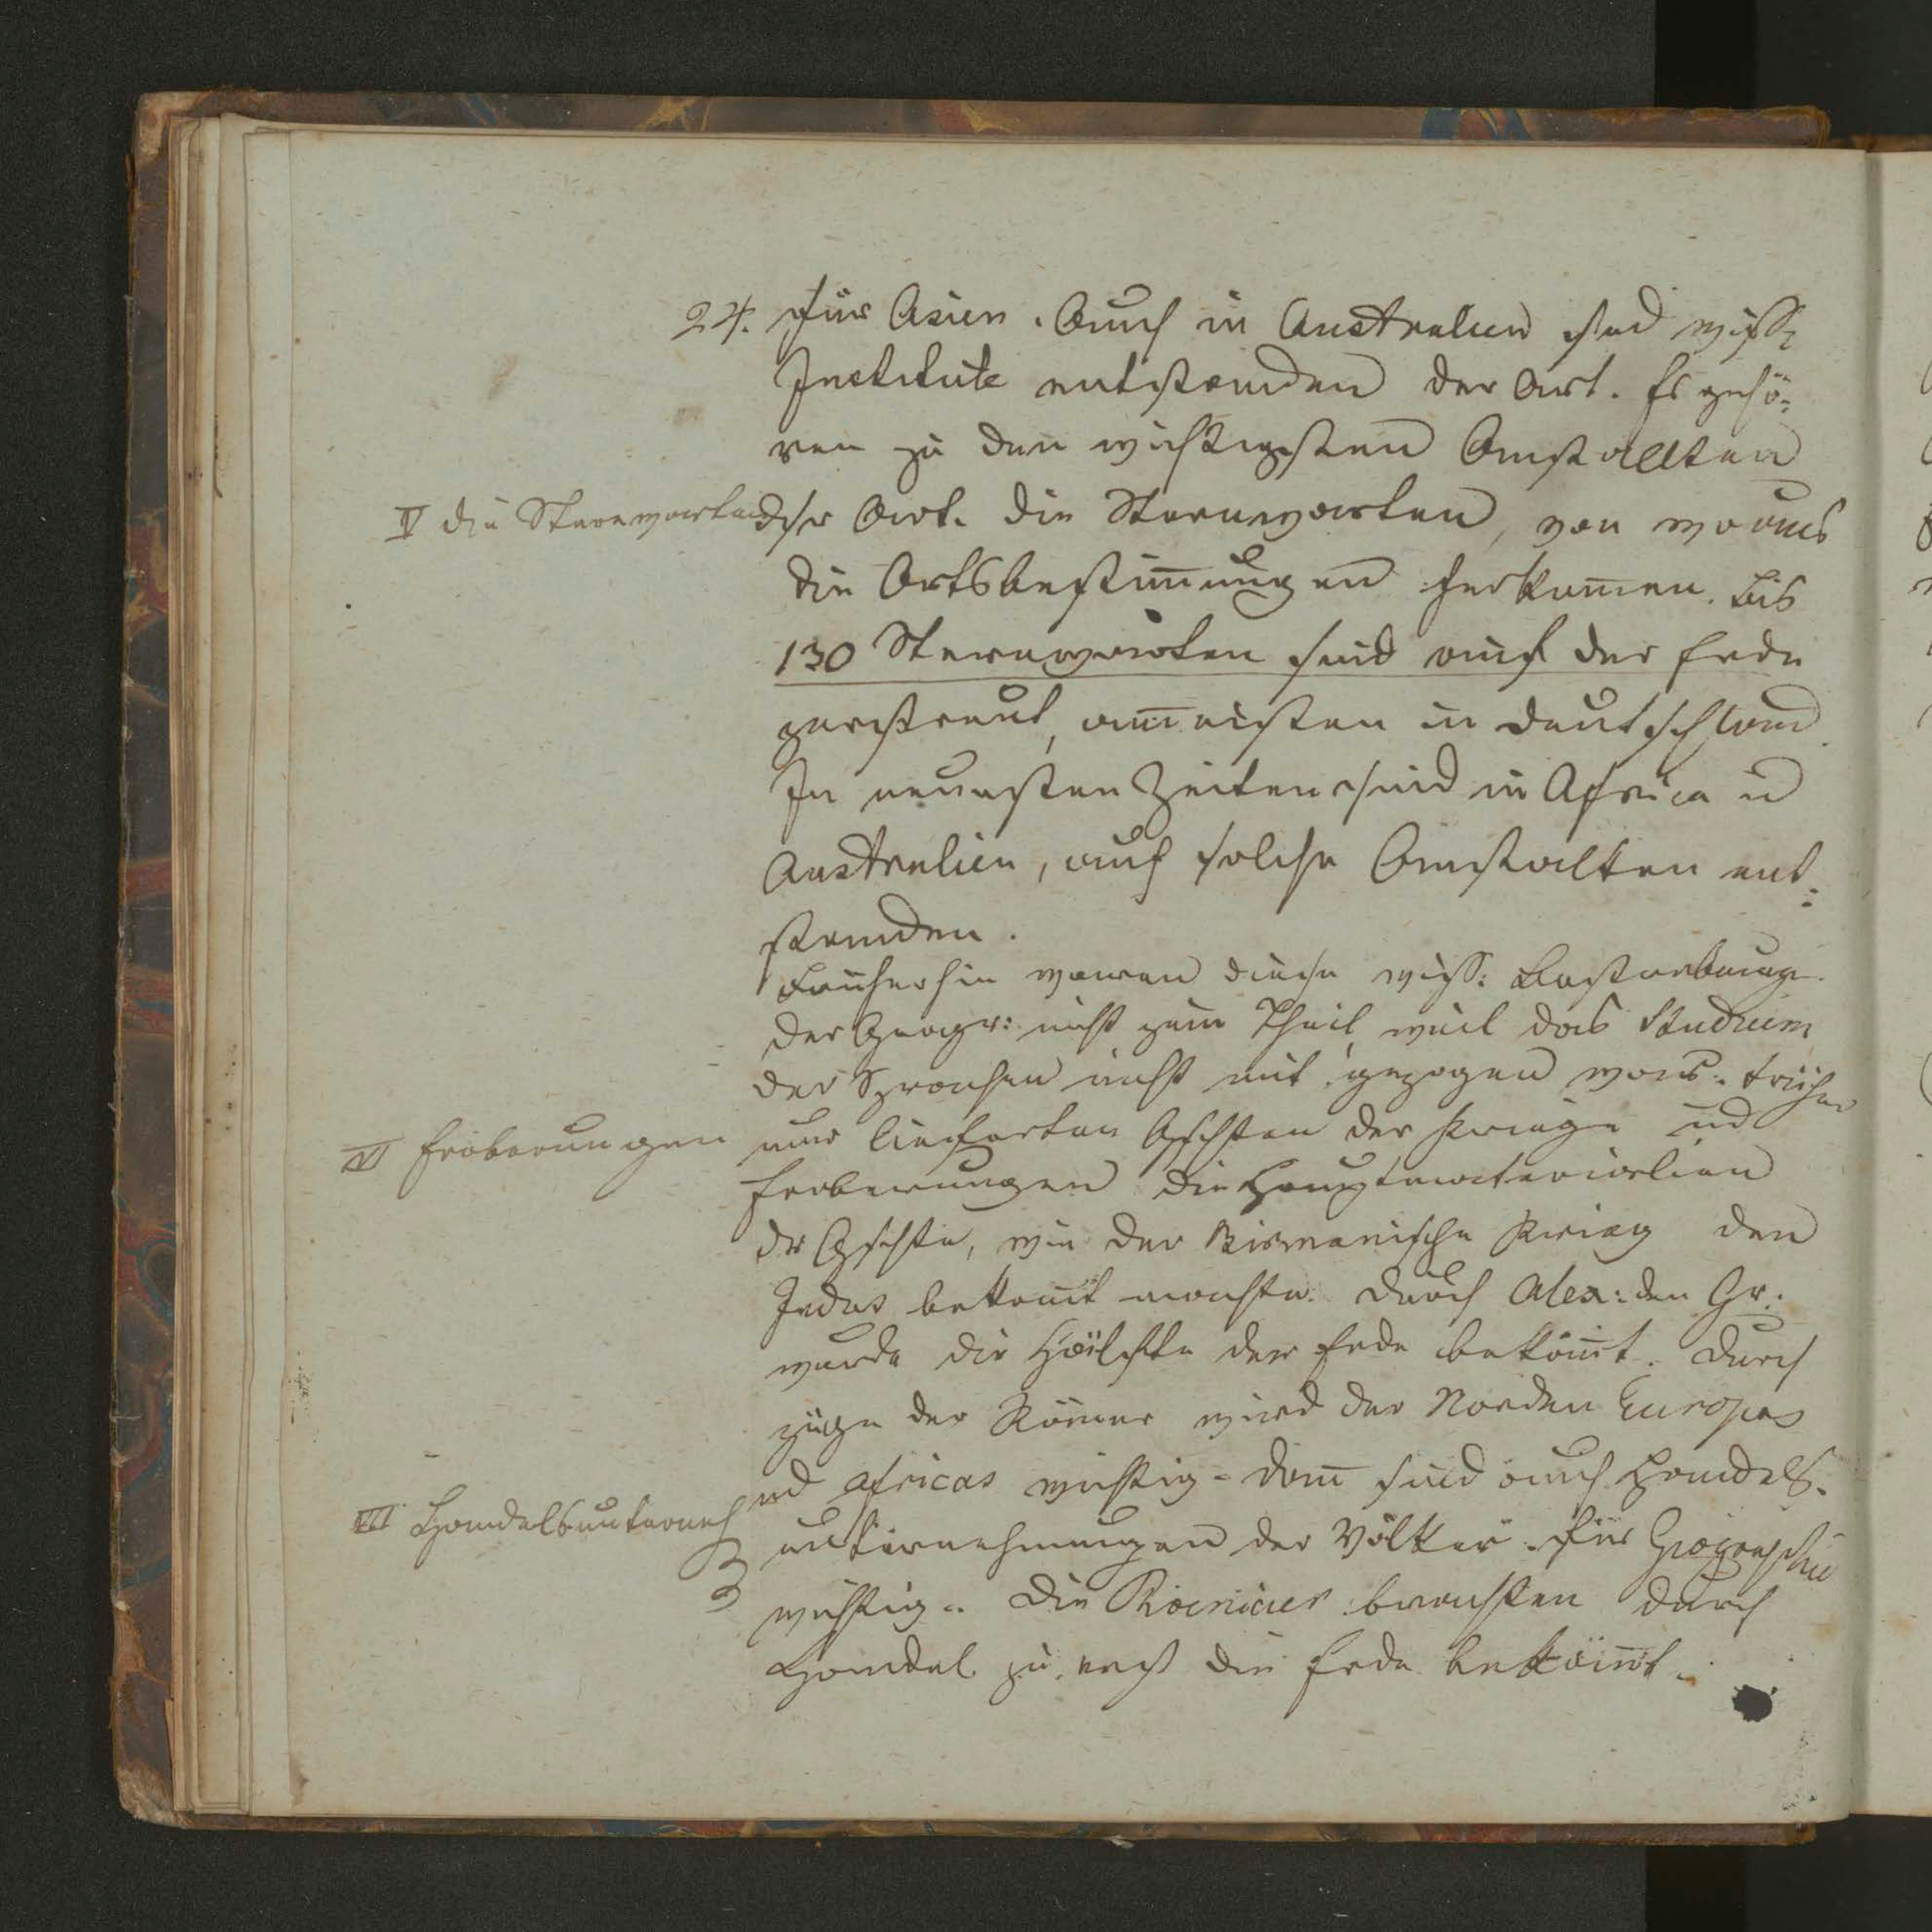 24. für Asien. Auch in Australien sind wissſ.
Institute entstanden der Art. Es gehö-
ren zu den wichtigsten Anstallten
IV die Sternwarten
dsr Art. die Sternwarten, von wo aus
die Ortsbestim̅ungen herkom̅en. Bis
130 Sternwarten sind auf der Erde
zerstreut, am̅eisten in Deutschland.
In neuesten Zeiten sind in Africa u
Australien, auch solche Anstalten ent-
standen.
Früherhin waren diese wiss: Bestrebunge
der Geogr: nicht zum Theil, weil das Studium
der Sprachen nicht mit gezogen war. Früher
VI Eroberungen
nur lieferten Gschten der Kriege und
Eroberungen die Hauptmaterialien
dr Gschte, wie der Birmanische Krieg den
Indus bekan̅t machte. Durch Alex: den Gr.
wurde die Hälfte der Erde bekan̅t. Durch
züge der Römer wird der Norden Europas
und Africas wichtig. Dan̅ sind auch Handels-
VII Handelsunterneh
unternehmungen der Völker für Geographie
wichtig. Die Phoenicier brachten durch
Handel zu erst die Erde bekan̅t.